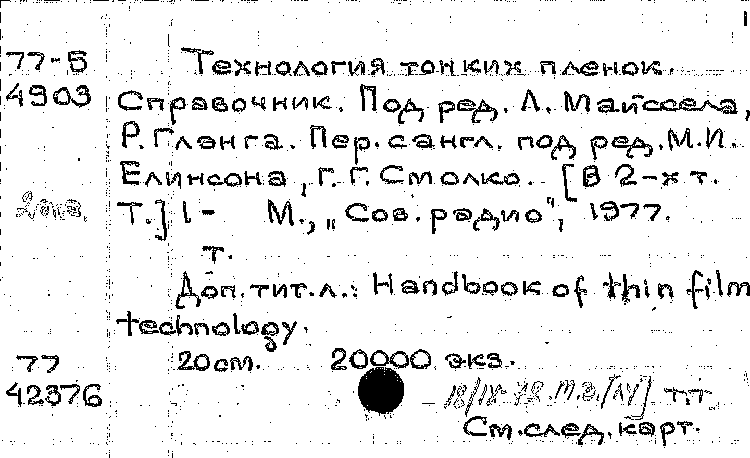 1
77-5 Технология тонких пленок.
4903 Справочник. Под ред. Л. Майссела,
Р. Глэнга. Пер. с англ. под ред. М.И.
Елинсона, Г. Г. Смолко. [В 2-х т.
2 экз. Т.] 1 - М., „Сов. радио", 1977.
т.
Доп. тит. л.: Handbook of thin film
technology.
77 20 см. 20000 экз.
42376 т.т.
См. след. карт.